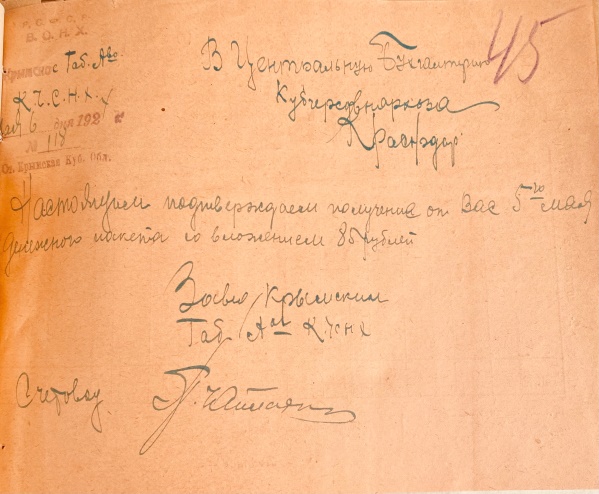 Р. С. Ф. С. Р.
В. С. Н. Х.
Крымское Таб. Аво
К.Ч.С.Н.Х.
мая 6 дня 192
№ 118
Ст. Крымская Куб. Обл.
45
В Центральную Бухгалтерию
Кубчерсовнархоза
Краснодар
Настоящим подтверждаем получение от Вас 5го мая
денежного пакета со вложением 85 рублей
Завед. Крымским
Таб. К.Ч.С.Н.Х
Счетовод